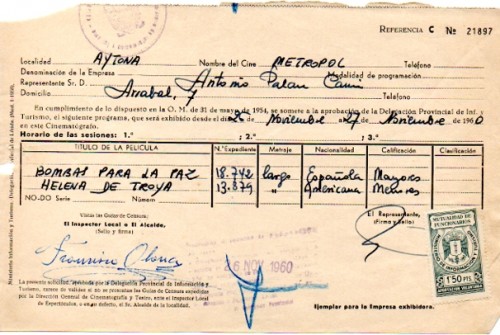 REFERENCIA C Nº 21897
Localidad AYTONA Nombre del Cine METROPOL Teléfono
Denominación de la Empresa Modalidad de programación
Representante Sr. D. Antonio Palau
Arrabal, 7 Teléfono
En cumplimiento de lo dispuesto en la O. M. de 31 de mayo de 1954, se somete a la aprobación de la Delegación Provincial de Inf. y
Turismo, el siguiente programa, que será exhibido desde el de Noviembre al 27 de Noviembre de 1960
en este Cinematógrafo.
Horario de las sesiones: 1.ª ; 2.ª ; 3.ª
TITULO DE LA PELICULA N.º Expediente Metraje Nacionalidad Calificación Clasificación
BOMBAS PARA LA PAZ 18.742 largo Española Mayores
HELENA DE TROYA 13.879 " Americana Menores
NO-DO Serie Número
Vistas las Guías de Censura:
El Inspector Local o El Alcalde,
(Sello y firma)
El Representante,
(Firma y Sello)
MUTUALIDAD DE FUNCIONARIOS
1'50 PTS
APORTACION VOLUNTARIA
NOV 1960
La presente solicitud, aprobada por la Delegación Provincial de Información y
Turismo, carece de validez si no se presentan las Guías de Censura expedidas
por la Dirección General de Cinematografía y Teatro, ante el Inspector Local
de Espectáculos o, en su defecto, el Sr. Alcalde de la localidad.
Ejemplar para la Empresa exhibidora.